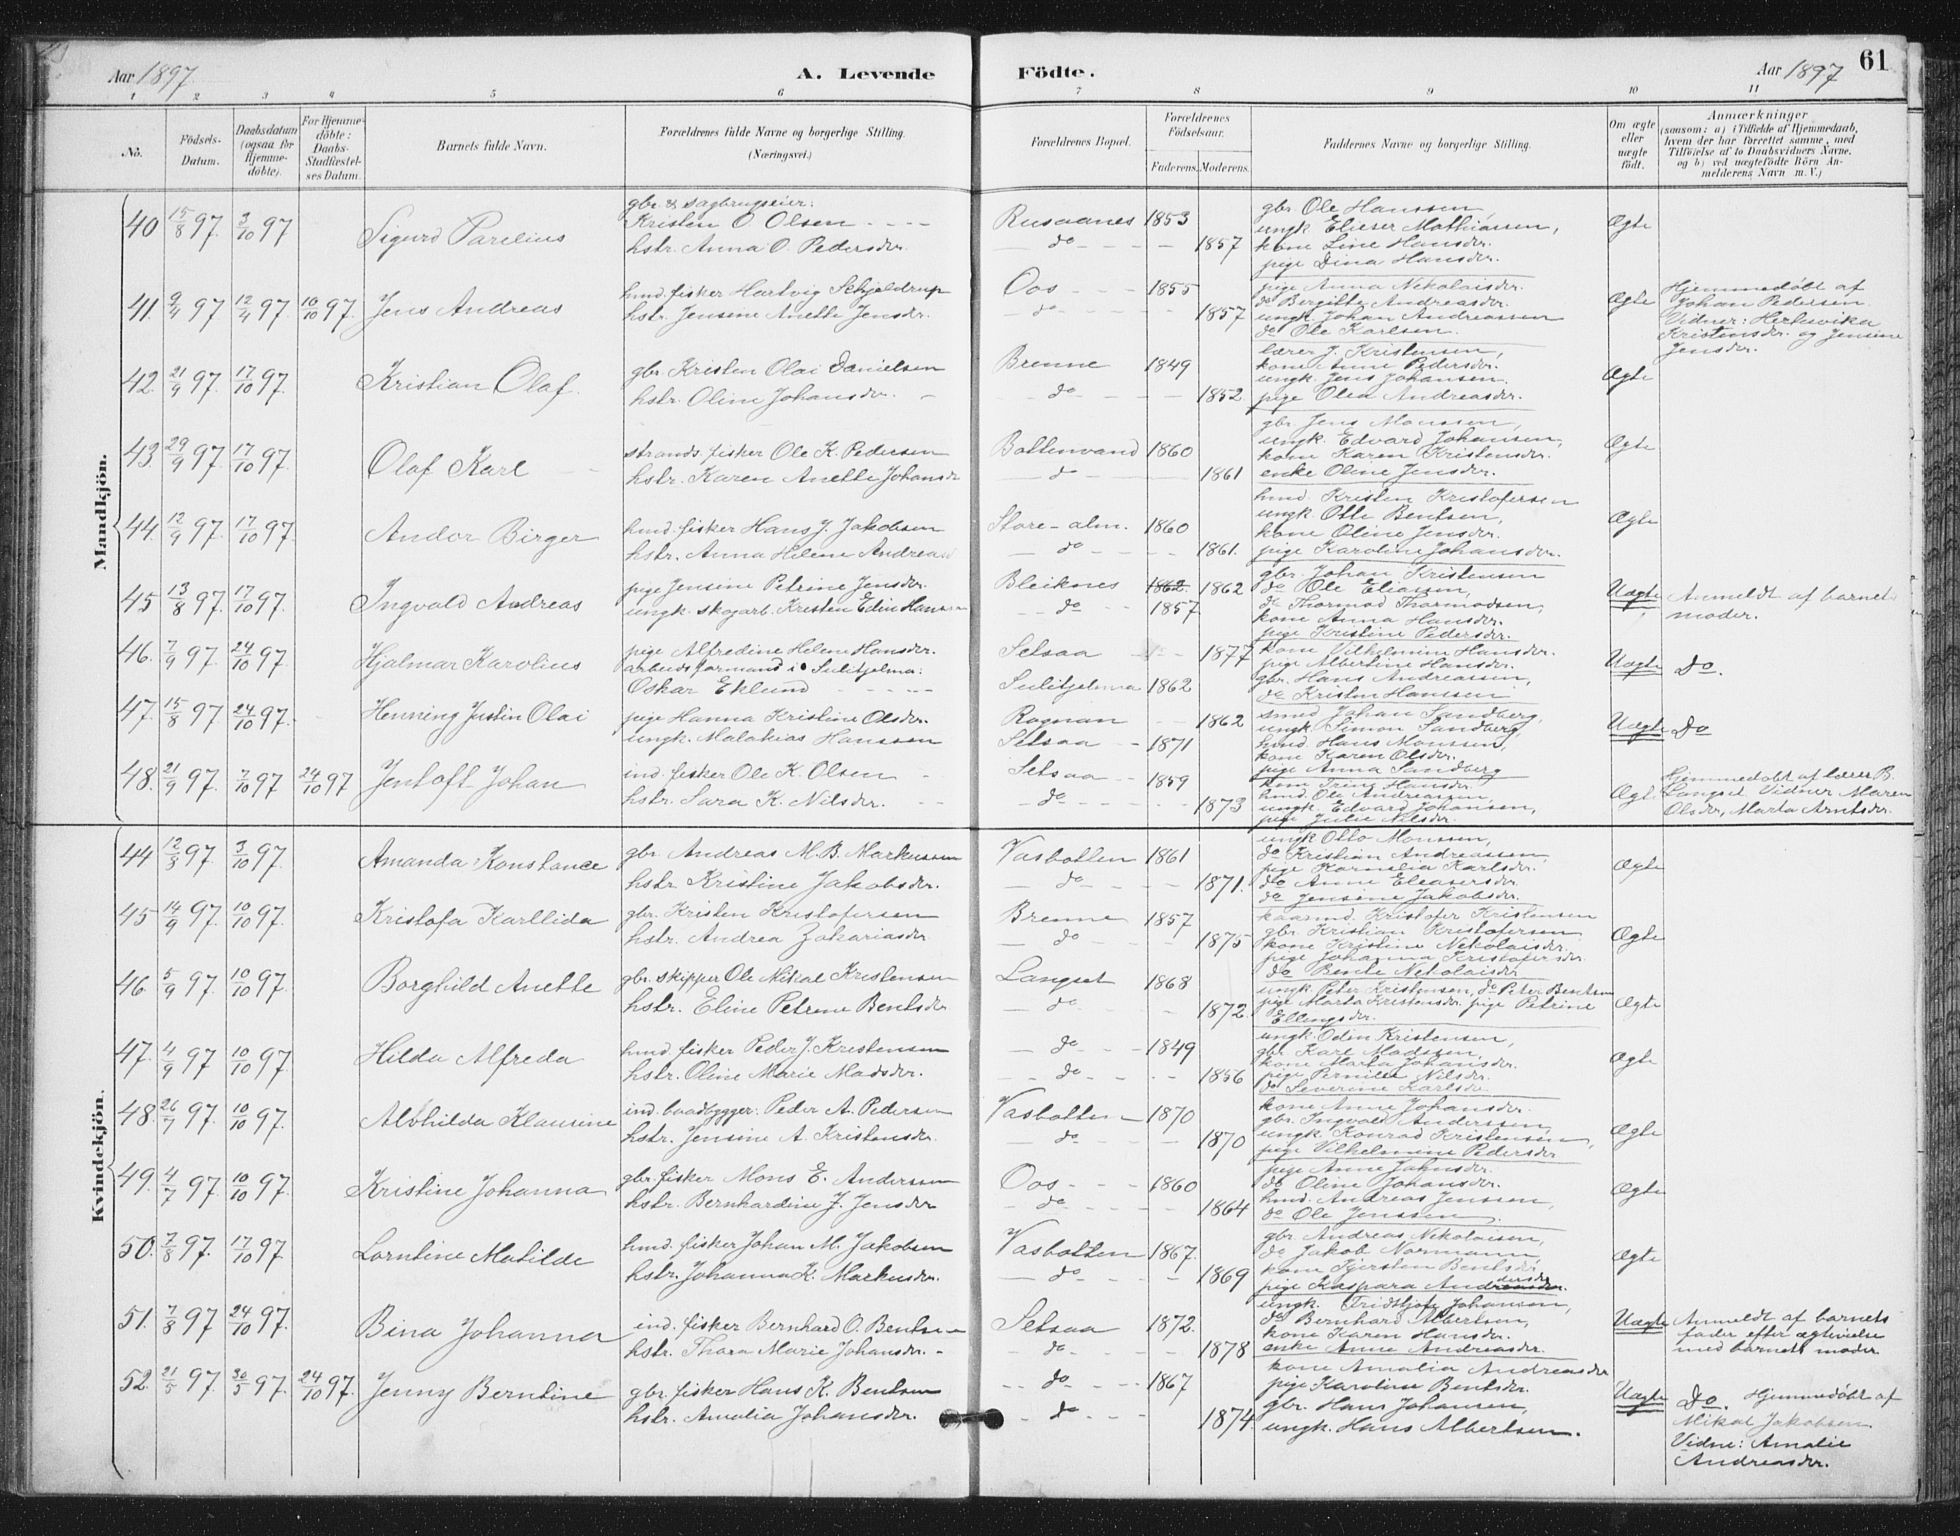 Aar 1897
A. Levende
Födte.
Aar 1897
61
1 2 3 4 5 6 7 8 9 10 11
No.
Födsels-Datum.
Daabsdatum (ogsaa for Hjemmedöbte).
For Hjemmedöbte: Daabs-Stadfæstelses Datum.
Barnets fulde Navn.
Forældrenes fulde Navne og borgerlige Stilling. (Næringsvei.)
Forældrenes Bopæl.
Forældrenes Födselsaar.
Faderens. Moderens.
Faddernes Navne og borgerlige Stilling.
Om ægte eller uægte födt.
Anmærkninger
(saasom: a) i Tilfælde af Hjemmedaab, hvem der har forrettet samme, med Tilföielse af to Daabsvidners Navne. og b) ved uægtefödte Börn Anmelderens Navn m. V.)
Mandkjön.
40 15/8 97. 3/10 97 Sigurd Parelius
gbr. & sagbrugseier:
Kristen O Olsen
hstr. Anna O. Pedersdr.
Rusaanes 1853
do 1857
gbr Ole Hanssen,
ungk Elieser Mathiassen,
kone Line Hansdr.
pige Dina Hansdr.
Ægte
41. 9/4 97 12/4 97 10/10 97. Jens Andreas
hmd. fisker Hartvig Schjeldrup
hstr. Jensine Anette Jensdr.
Oos 1855
do 1857
pige Anna Nekolaisdr.
do Bergitte Andreasdr.
ungk. Johan Andreassen
do Ole Karlsen.
Ægte
Hjemmedøbt af
Johan Pedersen
Vidner: Hertevika
Kristensdr. og Jensine
Jensdr.
42. 21/9 97. 17/10 97. Kristian Olaf.
gbr. Kristen Olai Danielsen
hstr. Oline Johansdr.
Brenne 1849
do 1852.
lærer J. Kristensen,
kone Anne Pedersdr.
ungk Jens Johansen.
pige Olea Andreasdr.
Ægte
43 29/9 97. 17/10 97. Olaf Karl
strands. fisker Ole K. Pedersen
hstr. Karen Anette Johansdr
Bottenvand 1860
do 1861
gbr Jens Monssen,
ungk. Edvard Johansen,
kone Karen Kristensdr.
enke Oline Jensdr.
Ægte
44. 12/9 97 17/10 97. Andor Birger
hmd. fisker Hans J. Jakobsen
hstr. Anna Helene Andreasd
Store-alm. 1860
do 1861.
hmd Kristen Kristofersen
ungk. Otte Bentsen,
kone Oline Jensdr.
pige Karoline Johansdr.
Ægte
45 13/8 97. 17/10 97. Ingvald Andreas
pige Jensine Petrine Jensdr.
ungk. skogarb. Kristen Edin Hanssen
Bleiknes 1862. 1862
do 1857
gbr. Johan Kristensen
do Ole Eliassen,
do Thormod Thormodsen,
kone Anna Hansdr.
pige Kristine Pedersdr.
Uægte
Anmeldt af barnets
moder.
46. 7/9 97. 24/10 97. Hjalmar Karolius
pige Alfredine Helene Hansdr.
arbeidsformand i Sulitjelma:
Oskar Eklund
Setsaa 1877
Sulitjelma 1862
kone Vilhelmine Hansdr.
pige Albertine Hansdr.
gbr. Hans Andreassen,
do Kristen Hanssen
Uægte
do.
47. 15/8 97 24/10 97. Henning Justin Olai
pige Hanna Kristine Olsdr.
ungk. Malakias Hanssen
Rognan 1862
Setsaa 1871
smed Johan Sandberg,
ungk Simon Sandberg,
hmd. Hans Monssen,
kone Karen Olsdr.
pige Anna Sandberg
Uægte
Do
48. 21/9 97. 7/10 97 24/10 97 Jentoft Johan
ind. fisker Ole K. Olsen
hstr. Sara K. Nilsdr.
Setsaa 1859
do 1873
hmd. Ole Andreassen
ungk. Edvard Johansen,
pige Julie Nilsdr.
Ægt.
Hjemmedøbt af lærer B.
Langset Vidner Maren
Olsdr, Marta Arntsdr.
Kvindekjön.
44 12/8 97. 3/10 97. Amanda Konstance
gbr. Andreas M. B. Markussen
hstr Kristine Jakobsdr.
Vasbotten 1861
do 1871.
ungk Otto Monssen,
do Kristian Andreassen,
pige Kornelia Karlsdr.
do Anne Eleasersdr
do Jensine Jakobsdr.
Ægte
45 14/9 97. 10/10 97. Kristofa Karllida
gbr. Kristen Kristofersen
hstr. Andrea Zakariasdr.
Brenne 1857
do 1875
kaarmd. Kristofer Kristensen
gbr. Kristian Kristofersen
kone Kristine Nekolaisdr.
pige Johanna Kristofersdr.
do Bente Nekolaisdr
Ægte
46 5/9 97. 10/10 97. Borghild Anette
gbr. skipper Ole Mikal Kristensen
hstr. Eline Petrine Bentsdr
Langset 1868
do 1872.
ungk Peter Kristensen, do Peter Bentsen
pige Marta Kristensdr. pige Petrine
Ellingsdr.
Ægte
47. 4/9 97 10/10 97. Hilda Alfreda
hmd. fisker Peder J. Kristensen
hstr. Oline Marie Madsdr.
do 1849
do 1856
ungk Odin Kristensen,
gbr. Karl Madssen,
kone Marta Johansdr.
pige Pernille Nilsdr.
do Severine Karlsdr
Ægte
48. 26/7 97. 10/10 97. Alvhilda Klausine
ind. baadbygger: Peder A. Pedersen
hstr. Jensine A. Kristensdr.
Vasbotten 1870
do 1870
kone Anne Johansdr.
gbr. Ingvald Anderssen,
ungk Konrad Kristensen,
pige Vilhelmine Pedersdr
Ægte
49. 4/7 97. 10/10 97. Kristine Johanna
gbr. fisker Mons E. Andersen
hstr. Bernhardine J. Jensdr
Oos 1860
do 1864
pige Anne Johnsdr.
do Oline Johansdr.
hmd. Andreas Jenssen,
do Ole Jenssen.
Ægte
50. 7/8 97. 17/10 97. Lorntine Matilde
hmd. fisker Johan M. Jakobsen
hstr. Johanna K. Markusdr.
Vasbotten 1867.
do 1869
gbr. Andreas Nikolaisen,
do Jakob Normann
kone Kjersten Bentsdr
pige Kaspara Andersdr.
Ægte
51. 7/8 97 24/10 97. Bina Johanna
ind. fisker Bernhard O. Bentsen
hstr. Thora Marie Johansdr.
Setsaa 1872.
do 1878
ungk. Fridthjof Johansen,
do Bernhard Albertsen,
kone Karen Hansdr.
enke Anne Andreasdr.
Uægte
Anmeldt af barnets
fader efter ægtevielse
med barnets moder
52. 21/5 97. 30/5 97. 24/10 97. Jenny Berntine
gbr. fisker Hans K. Bentsen
hstr. Amalia Johansdr.
do 1867
do 1874.
kone Amalia Andreasdr
pige Karoline Bentsdr.
gbr. Hans Johansen,
ungk. Hans Albertsen.
Uægte
Do. Hjemmedøbt af
Mikal Jakobsen.
Vidne: Amalie
Andreasdr.